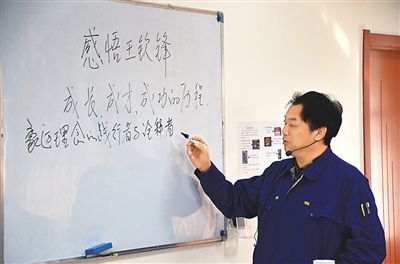 感悟王钦锋
成长、成才、成功的历程
豪迈理念的践行者与诠释者